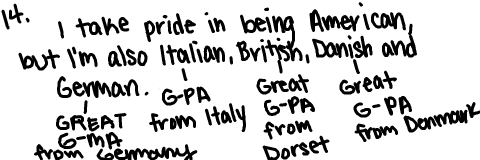 14. I take pride in being American,
but I'm also Italian, British, Danish and
German.
G-PA
from Italy
Great
G-PA
from
Dorset
Great
G-PA
from Denmark
GREAT
G-MA
from Germany